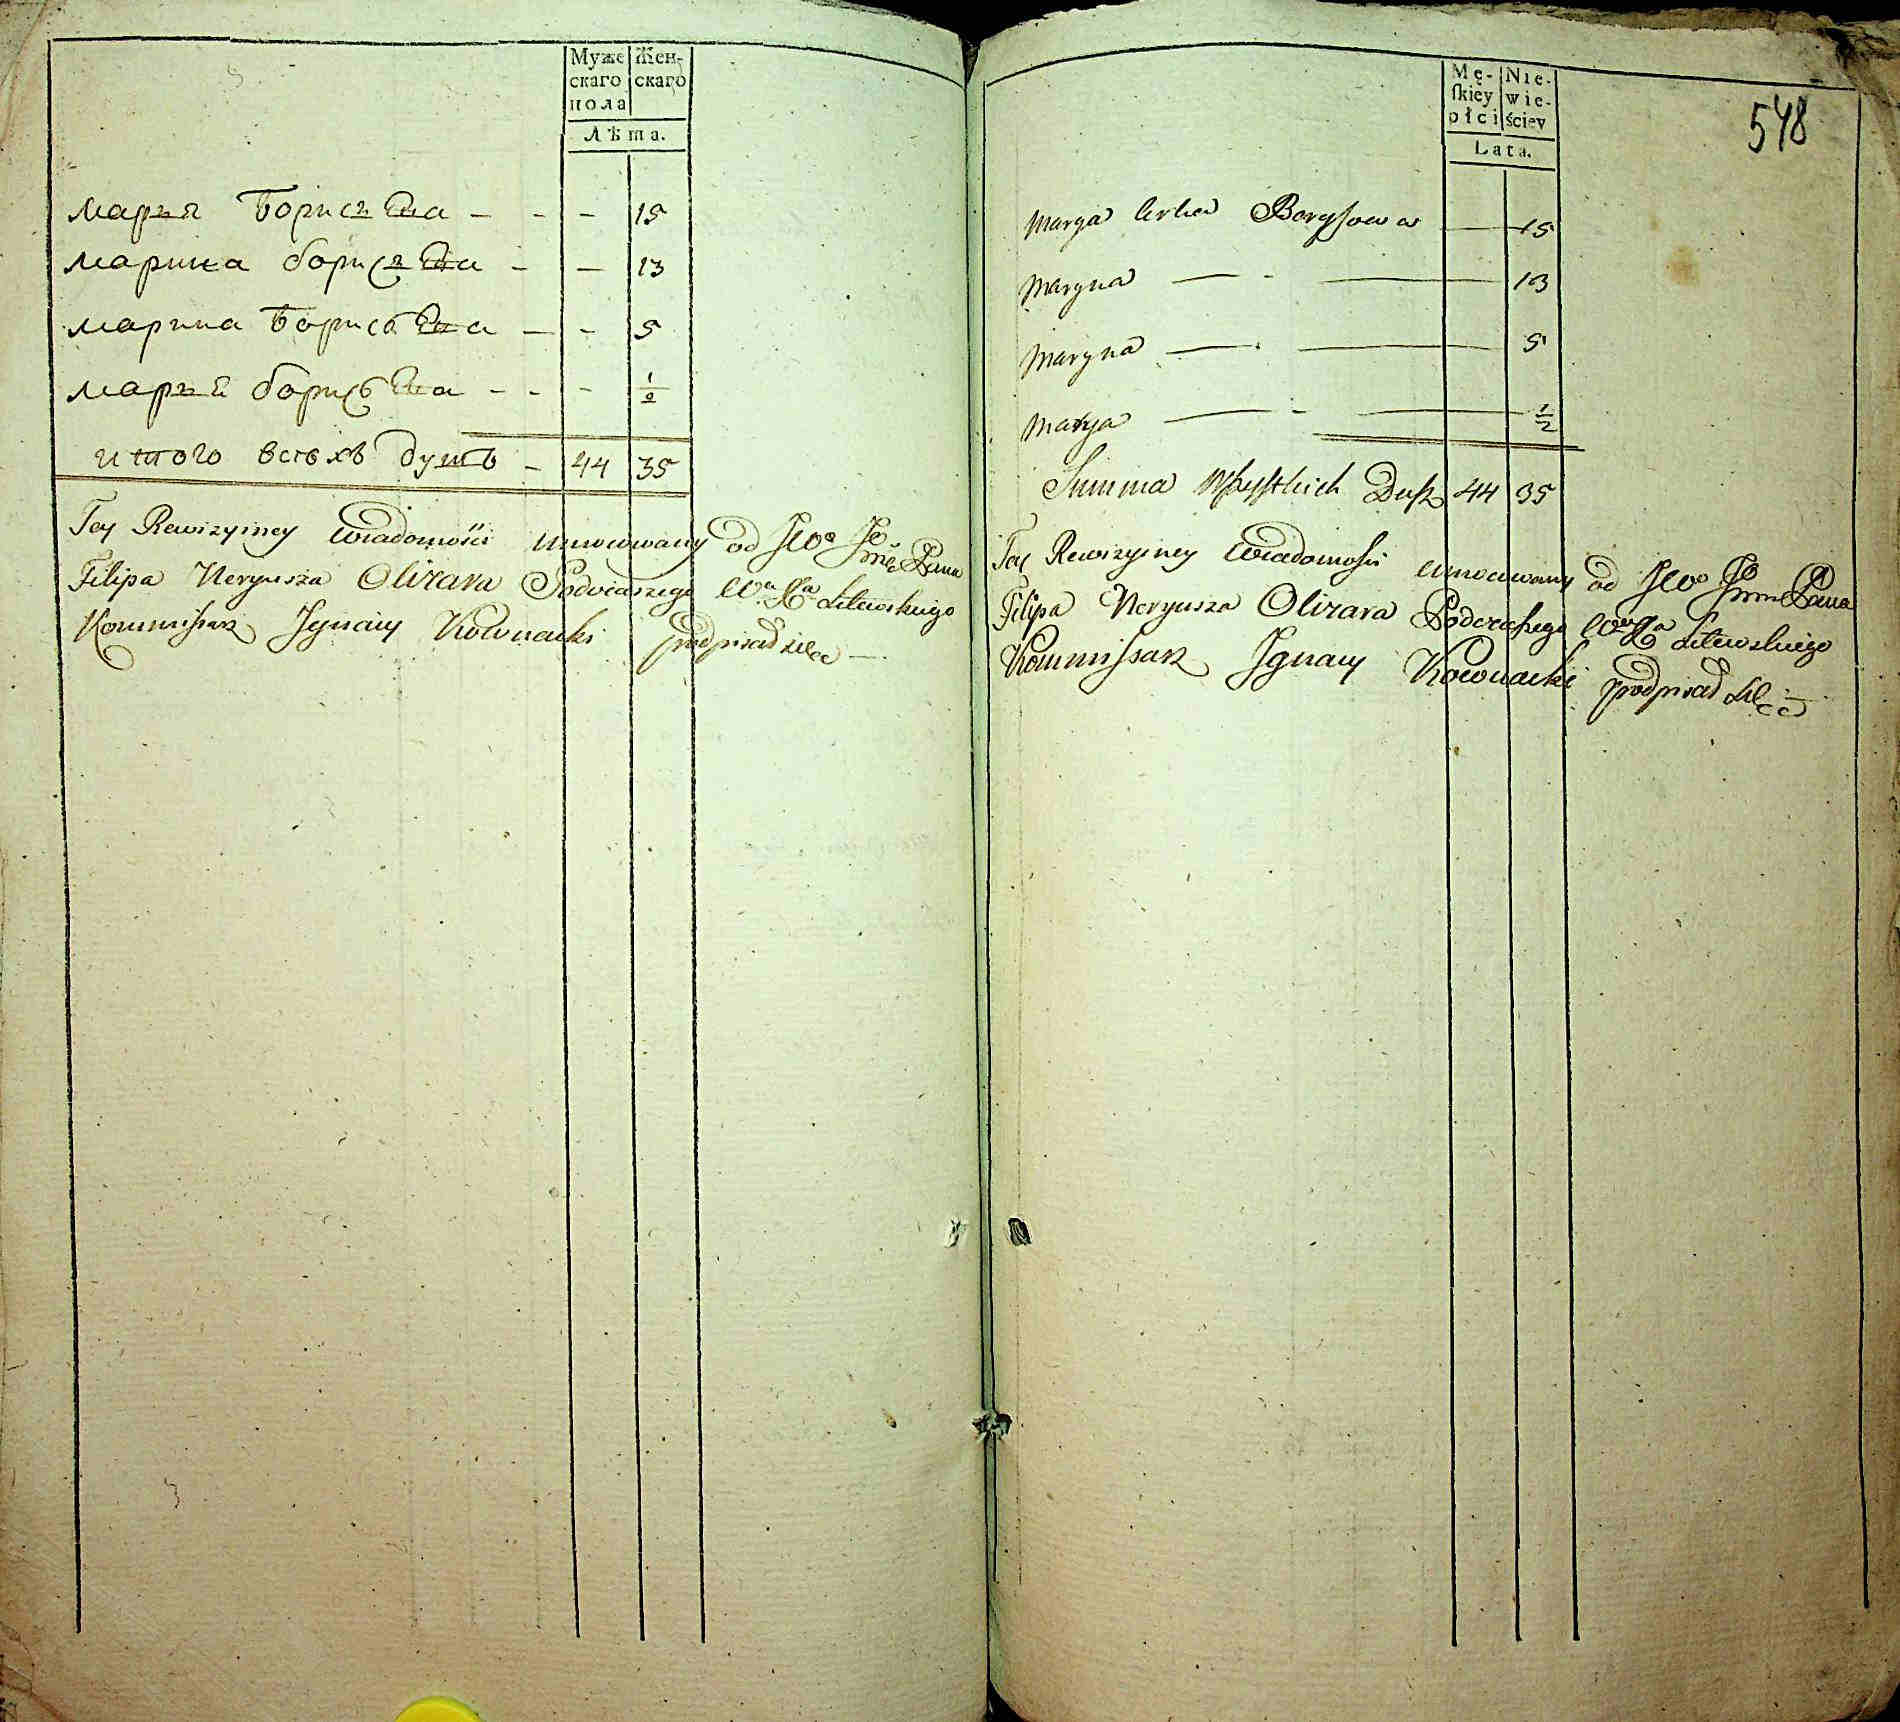 Муже Жен-
скаго скаго
пола
Лѣта.
марья Борисъвна - - - 15
марина борисъвна - - 13
марина Борисъвна - - 5
марья борисъвна - - - 1/2
итого всѣхъ душъ - 44 35
Tey Rewizyiney Wiadomości umocowany od JWo Jo Pana
Filipa Neryusza Olizara Podczaszego Wo Xa Litewskiego
Kommissarz Ignacy Kownacki podpisał
548
Mę- Nie-
skiey wie-
płci ściey
Lata.
Marya Corka Borysowa 15
Maryna 13
Maryna 5
Marya 1/2
Summa Wszystkich Dusz 44 35
Tey Rewizyiney Wiadomości umocowany od JWo Jo Pana
Filipa Neryusza Olizara Podczaszego Wo Xa Litewskiego
Kommissarz Ignacy Kownacki podpisał